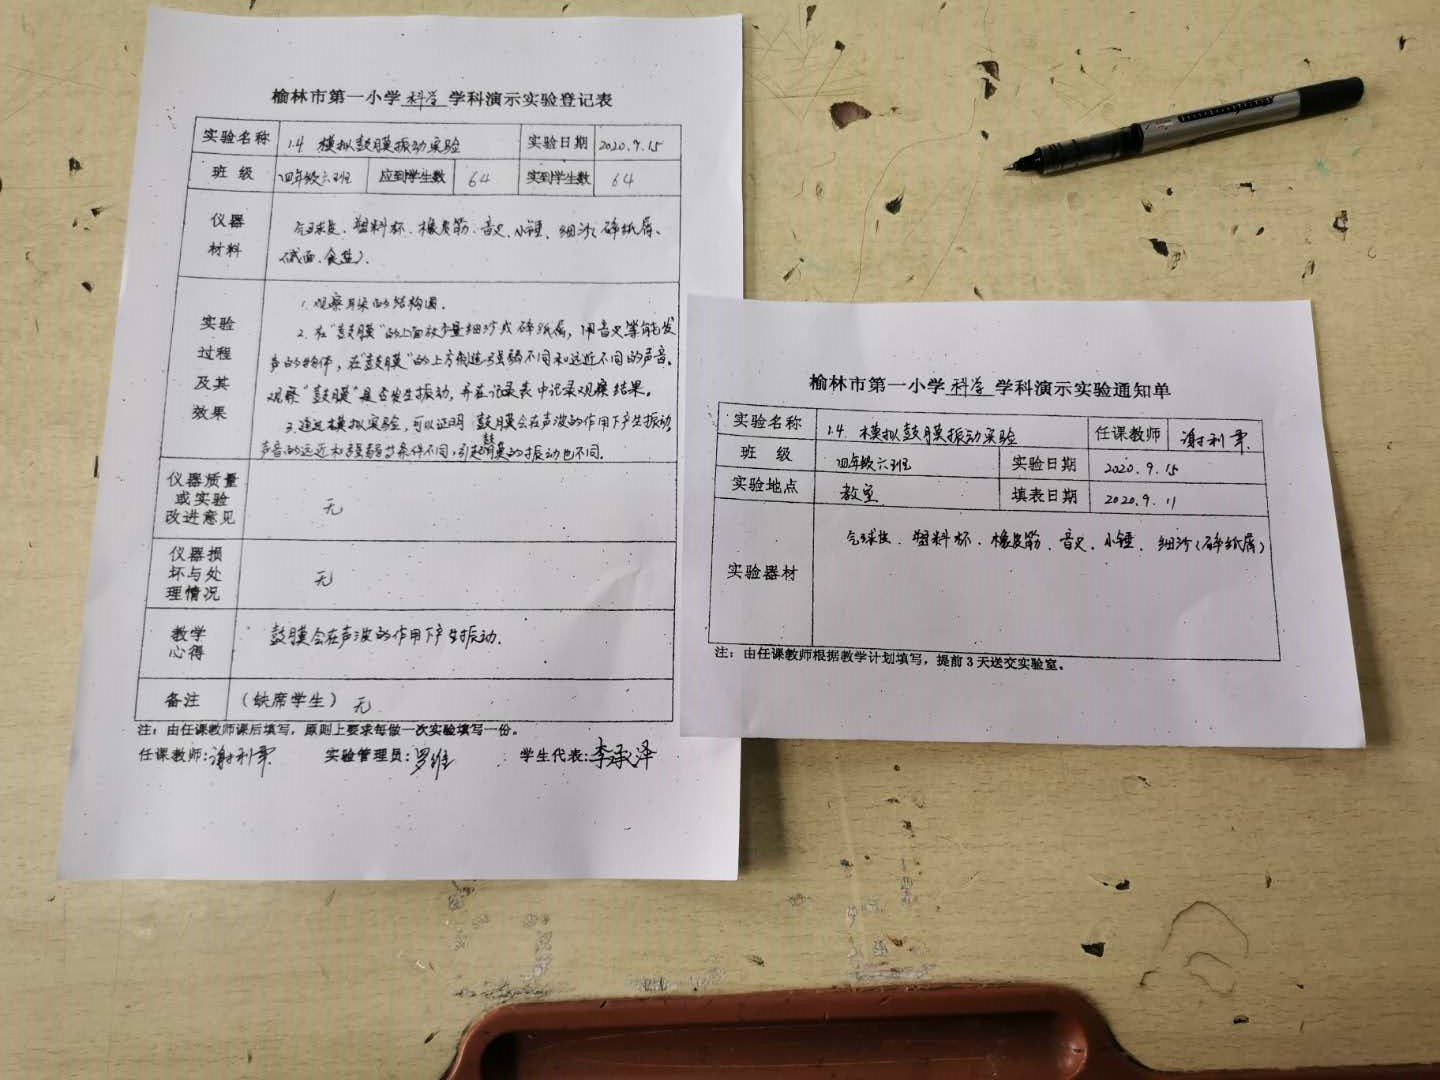 榆林市第一小学 科学 学科演示实验登记表
实验名称 1.4 模拟鼓膜振动实验 实验日期 2020.9.15
班 级 四年级六班 应到学生数 64 实到学生数 64
仪器
材料
气球皮、塑料杯、橡皮筋、音叉、小锤、细沙(碎纸屑、
碱面、食盐).
实验
过程
及其
效果
1.观察耳朵的结构图.
2.在"鼓膜"的上面放少量细沙或碎纸屑,用音叉等能发
声的物体,在"鼓膜"的上方制造强弱不同和远近不同的声音.
观察"鼓膜"是否发生振动,并在记录表中记录观察结果。
3.通过模拟实验,可以证明 鼓膜会在声波的作用下产生振动,
声音的远近和强弱等条件不同,引起鼓膜的振动也不同.
仪器质量
或实验
改进意见
无
仪器损
坏与处
理情况
无
教学
心得
鼓膜会在声波的作用下产生振动.
备注 (缺席学生) 无
注：由任课教师课后填写，原则上要求每做一次实验填写一份。
任课教师:谢利军 实验管理员:罗维 学生代表:李承泽
榆林市第一小学 科学 学科演示实验通知单
实验名称 1.4 模拟鼓膜振动实验 任课教师 谢利军
班 级 四年级六班 实验日期 2020.9.15
实验地点 教室 填表日期 2020.9.11
实验器材
气球皮、塑料杯、橡皮筋、音叉、小锤、细沙(碎纸屑)
注：由任课教师根据教学计划填写，提前3天送交实验室。